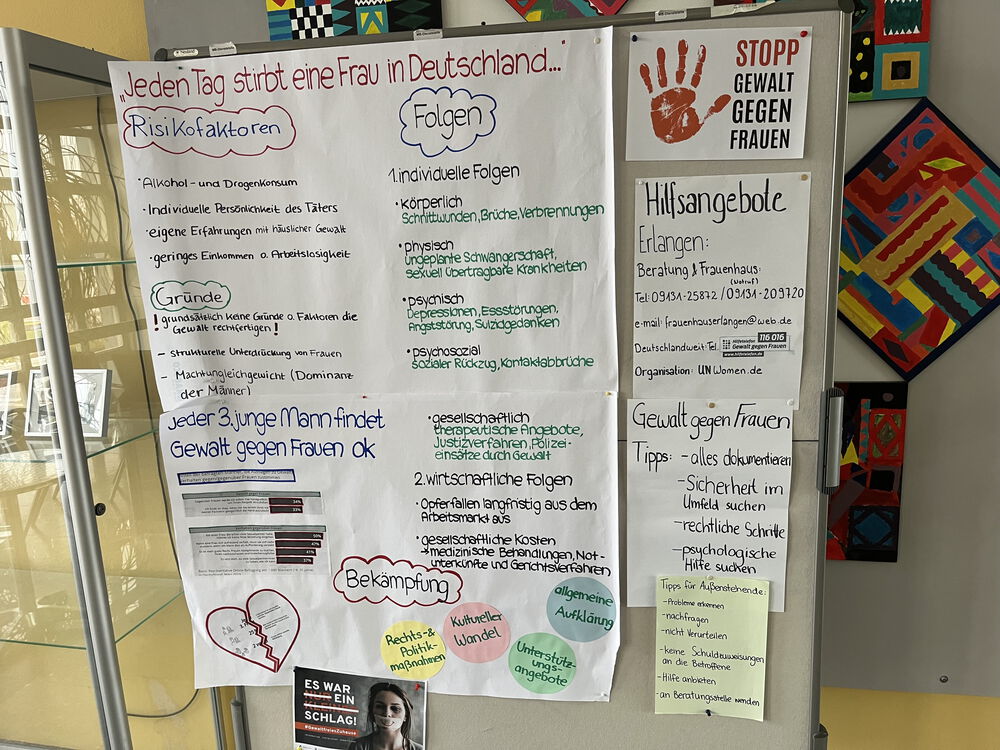 „Jeden Tag stirbt eine Frau in Deutschland..."
Risikofaktoren
• Alkohol- und Drogenkonsum
• Individuelle Persönlichkeit des Täters
• eigene Erfahrungen mit häuslicher Gewalt
• geringes Einkommen o. Arbeitslosigkeit
Gründe
! grundsätzlich keine Gründe o. Faktoren die
Gewalt rechtfertigen!
- strukturelle Unterdrückung von Frauen
- Machtungleichgewicht (Dominanz
der Männer)
Folgen
1. individuelle Folgen
• körperlich
Schnittwunden, Brüche, Verbrennungen
• physisch
ungeplante Schwangerschaft,
sexuell übertragbare Krankheiten
• psychisch
Depressionen, Essstörungen,
Angststörung, Suizidgedanken
• psychosozial
sozialer Rückzug, Kontaktabbrüche
Jeder 3. junge Mann findet
Gewalt gegen Frauen ok
34%
33%
50%
47%
41%
37%
• gesellschaftlich
therapeutische Angebote,
Justizverfahren, Polizei-
einsätze durch Gewalt
2. wirtschaftliche Folgen
• Opfer fallen langfristig aus dem
Arbeitsmarkt aus
• gesellschaftliche Kosten
→ medizinische Behandlungen, Not-
unterkünfte und Gerichtsverfahren
Bekämpfung
Rechts- &
Politik-
maßnahmen
Kultureller
Wandel
Unterstütz-
ungs-
angebote
allgemeine
Aufklärung
ES WAR
NUR EIN
KLEINER
SCHLAG!
#GewaltfreiesZuhause
STOPP
GEWALT
GEGEN
FRAUEN
Hilfsangebote
Erlangen:
Beratung & Frauenhaus:
(Notruf)
Tel: 09131-25872 / 09131-209720
e-mail: frauenhauserlangen@web.de
Deutschlandweit: Tel.
Hilfetelefon 116 016
Gewalt gegen Frauen
www.hilfetelefon.de
Organisation: UN Women.de
Gewalt gegen Frauen
Tipps: - alles dokumentieren
- Sicherheit im
Umfeld suchen
- rechtliche Schritte
- psychologische
Hilfe suchen
Tipps für Außenstehende:
- Probleme erkennen
- nachfragen
- nicht Verurteilen
- keine Schuldzuweisungen
an die Betroffene
- Hilfe anbieten
- an Beratungsstelle wenden